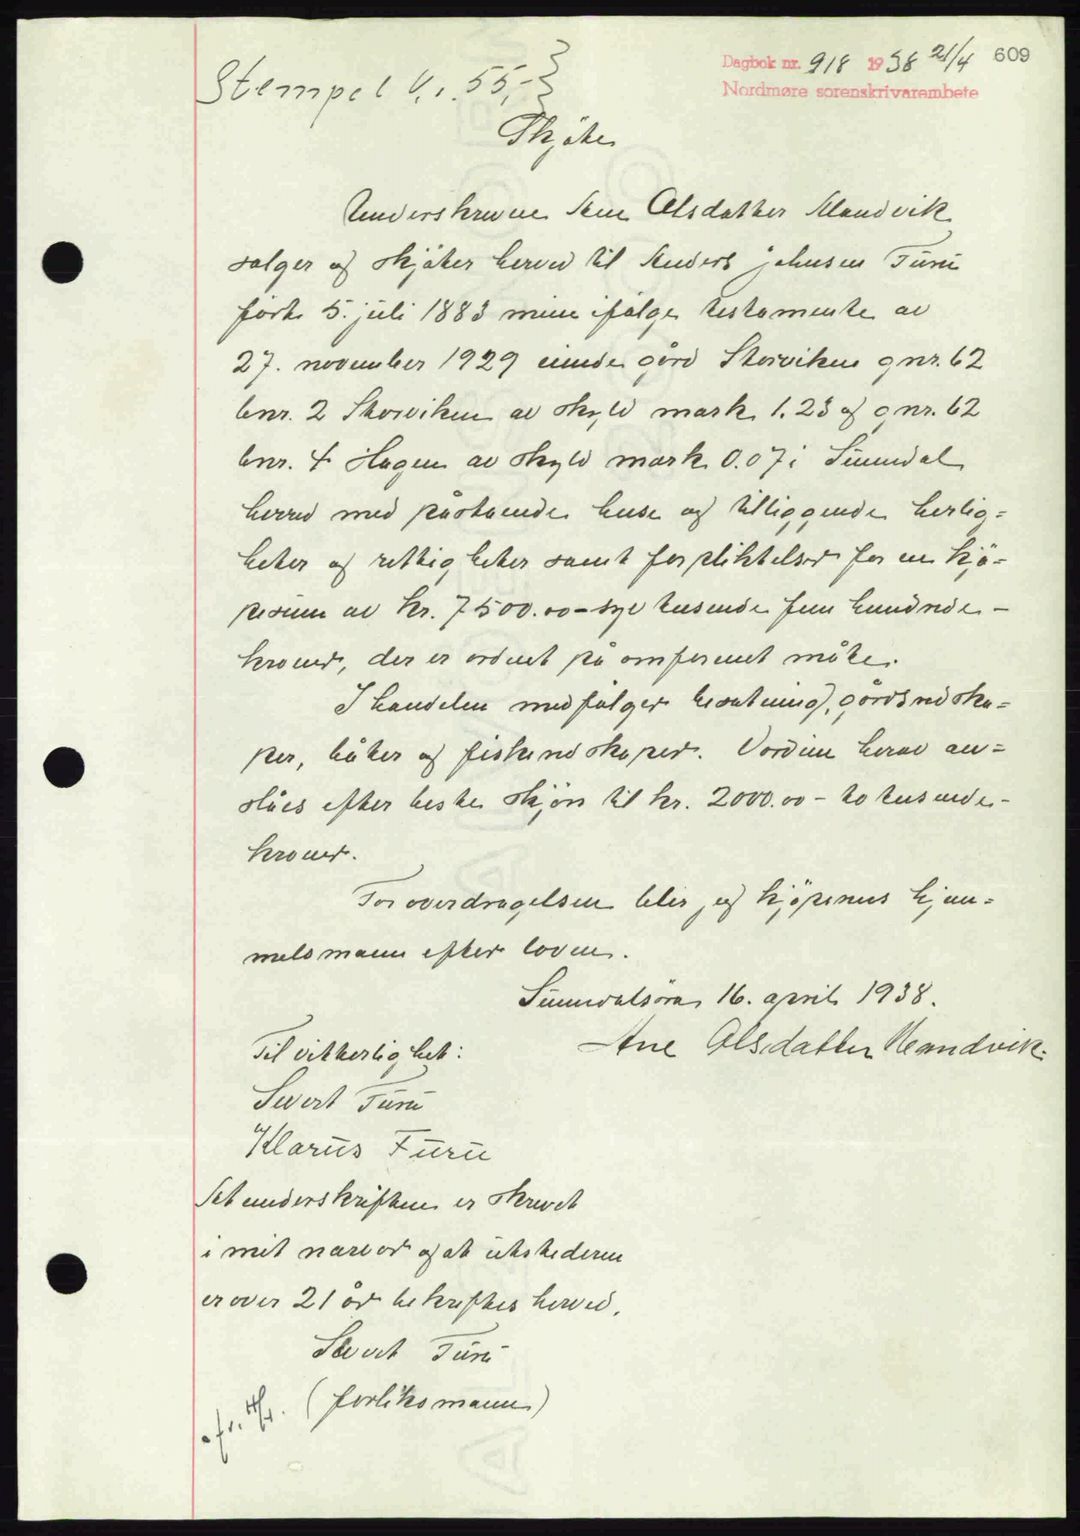 Dagbok nr. 918 1938 21/4 609
Nordmøre sorenskrivarembete
Stempel kr. 55,-
Skjöte
Underskrevne Ane Olsdatter Mandvik
selger og skjöter herved til Anders Johnsen Furu
født 5. juli 1883 min ifølge testamente av
27. november 1929 eiende gård Storviken gnr. 62
bnr. 2 Storviken av skyld mark 1.23 og gnr. 62
bnr. 4 Hagen av skyld mark 0.07 i Sunndal
herred med påstående huse og tilliggende herlig=
heter og rettigheter samt forpliktelser for en kjö=
pesum av kr. 7500.00 - syv tusende fem hundrede -
kroner, der er ordnet på omforenet måte.
I handelen medfølger besetning, gårdsredska=
per, båter og fiskeredskaper. Verdien herav an=
slåes efter beste skjön til kr. 2000.00 - to tusende -
kroner.
For overdragelsen blir jeg kjöperens hjem=
melsmann efter loven.
Sunndalsöra 16. april 1938.
Ane Olsdatter Mandvik.
Til vitterlighet:
Sivert Furu
Klarus Furu
At underskriften er skrevet
i mit nærvær og at utstederen
er over 21 år bekreftes herved.
Sivert Furu
(forliksmann)